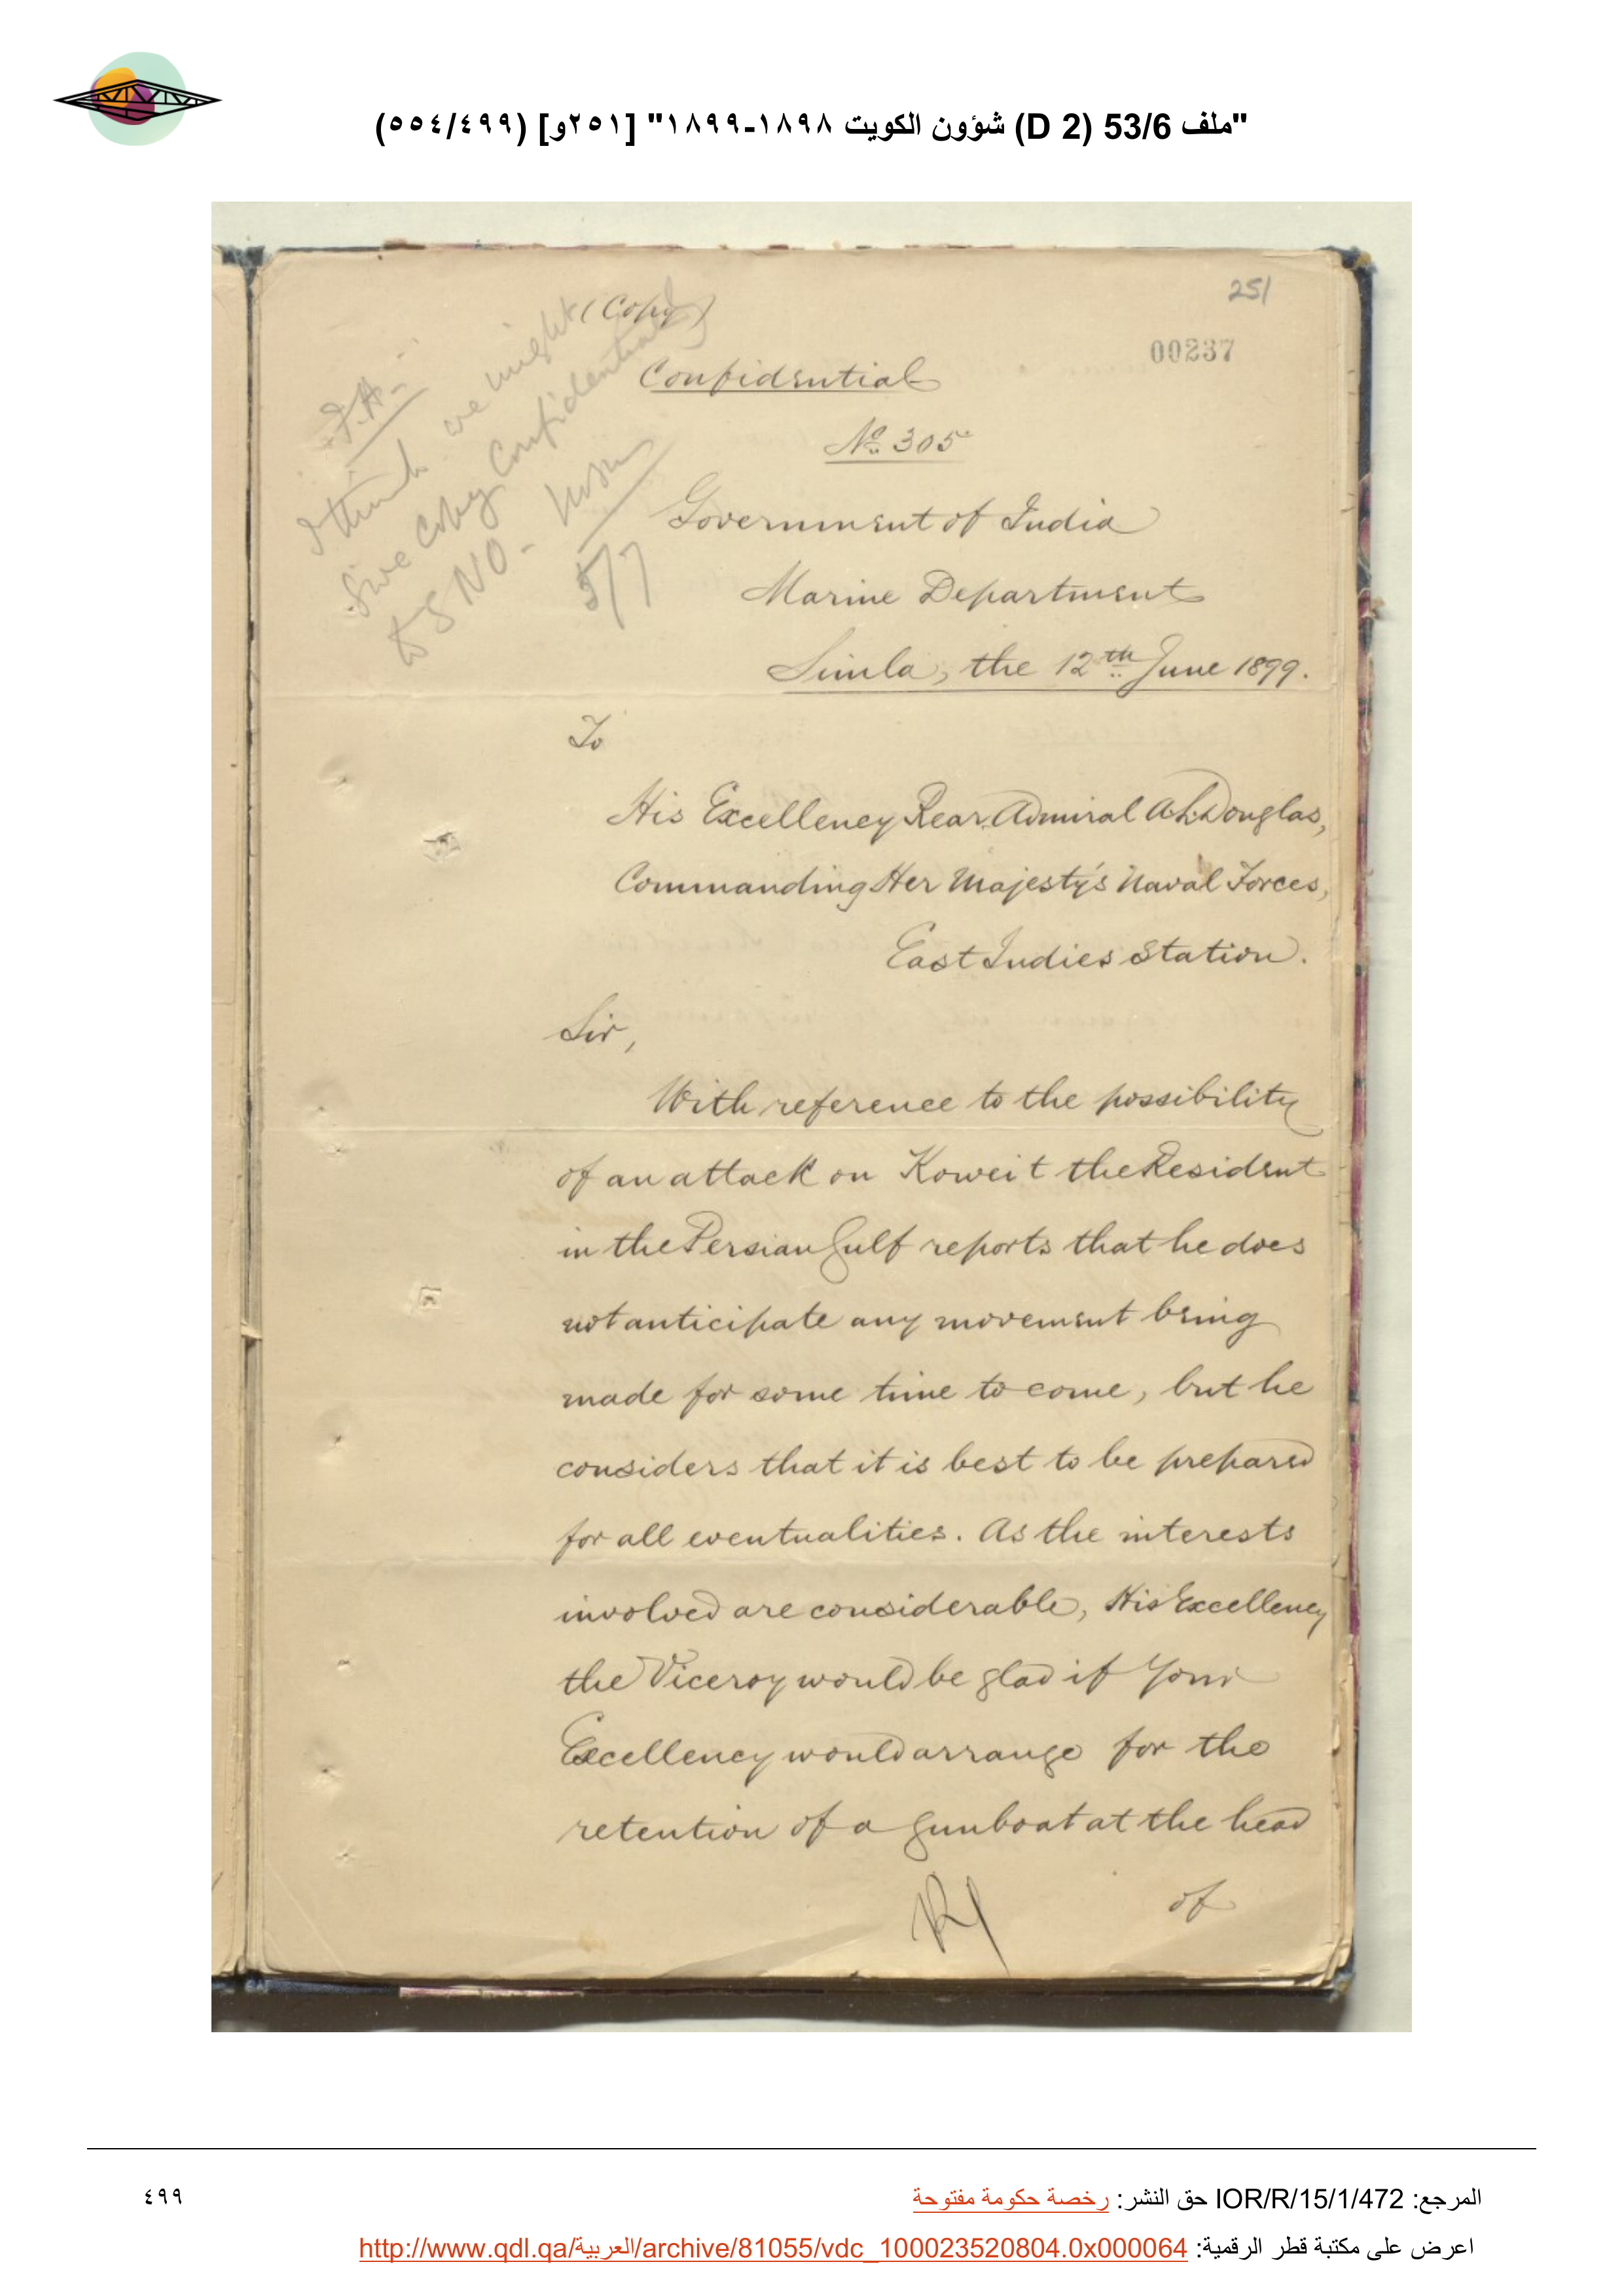 "ملف 53/6 (D 2) شؤون الكويت ١٨٩٨-١٨٩٩" [٢٥١و] (٥٥٤/٤٩٩)
251
00237
(Copy)
Confidential
No. 305
Government of India
Marine Department
Simla, the 12th June 1899.
I think we might
give copy Confidentially
to SNO -
5/7
To
His Excellency Rear Admiral A.L. Douglas,
Commanding Her Majesty's Naval Forces,
East Indies Station.
Sir,
With reference to the possibility
of an attack on Koweit the Resident
in the Persian Gulf reports that he does
not anticipate any movement being
made for some time to come, but he
considers that it is best to be prepared
for all eventualities. As the interests
involved are considerable, His Excellency
the Viceroy would be glad if Your
Excellency would arrange for the
retention of a gunboat at the head
of
المرجع: IOR/R/15/1/472 حق النشر: رخصة حكومة مفتوحة
٤٩٩
اعرض على مكتبة قطر الرقمية: http://www.qdl.qa/العربية/archive/81055/vdc_100023520804.0x000064